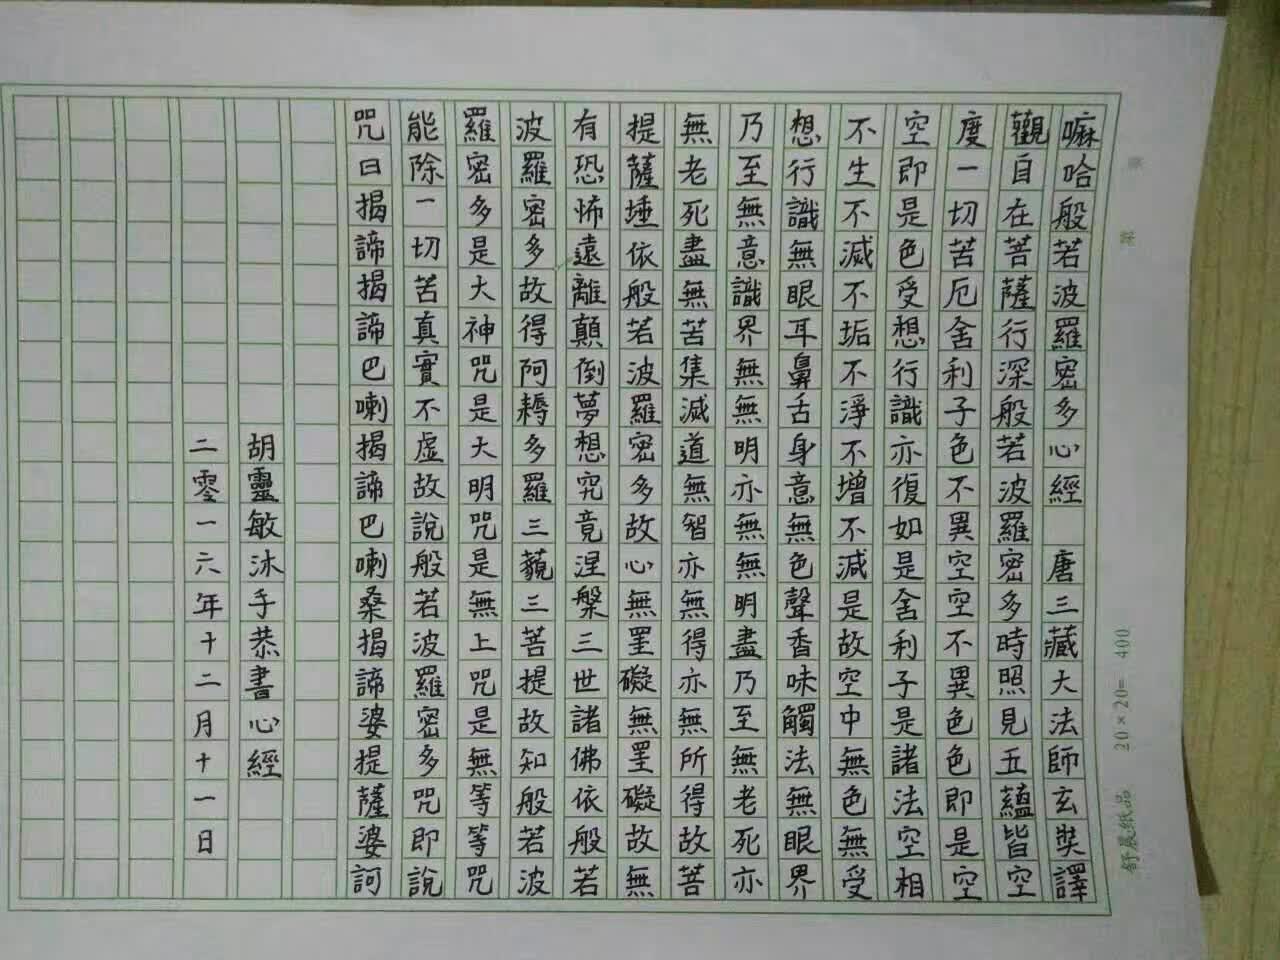 嘛哈般若波羅密多心經 唐三藏大法師玄奘譯
觀自在菩薩行深般若波羅密多時照見五蘊皆空
度一切苦厄舍利子色不異空空不異色色即是空
空即是色受想行識亦復如是舍利子是諸法空相
不生不滅不垢不淨不增不減是故空中無色無受
想行識無眼耳鼻舌身意無色聲香味觸法無眼界
乃至無意識界無無明亦無無明盡乃至無老死亦
無老死盡無苦集滅道無智亦無得亦無所得故菩
提薩埵依般若波羅密多故心無罣礙無罣礙故無
有恐怖遠離顛倒夢想究竟涅槃三世諸佛依般若
波羅密多故得阿耨多羅三藐三菩提故知般若波
羅密多是大神咒是大明咒是無上咒是無等等咒
能除一切苦真實不虛故說般若波羅密多咒即說
咒曰揭諦揭諦巴喇揭諦巴喇桑揭諦婆提薩婆訶
胡靈敏沐手恭書心經
二零一六年十二月十一日
20×20=400
舒晨纸品